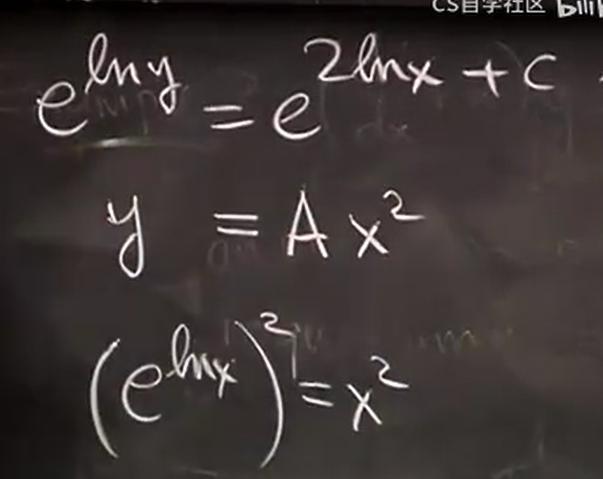 CS自学社区 bili
e^{ln y} = e^{2lnx + c}
y = Ax²
(e^{lnx})² = x²